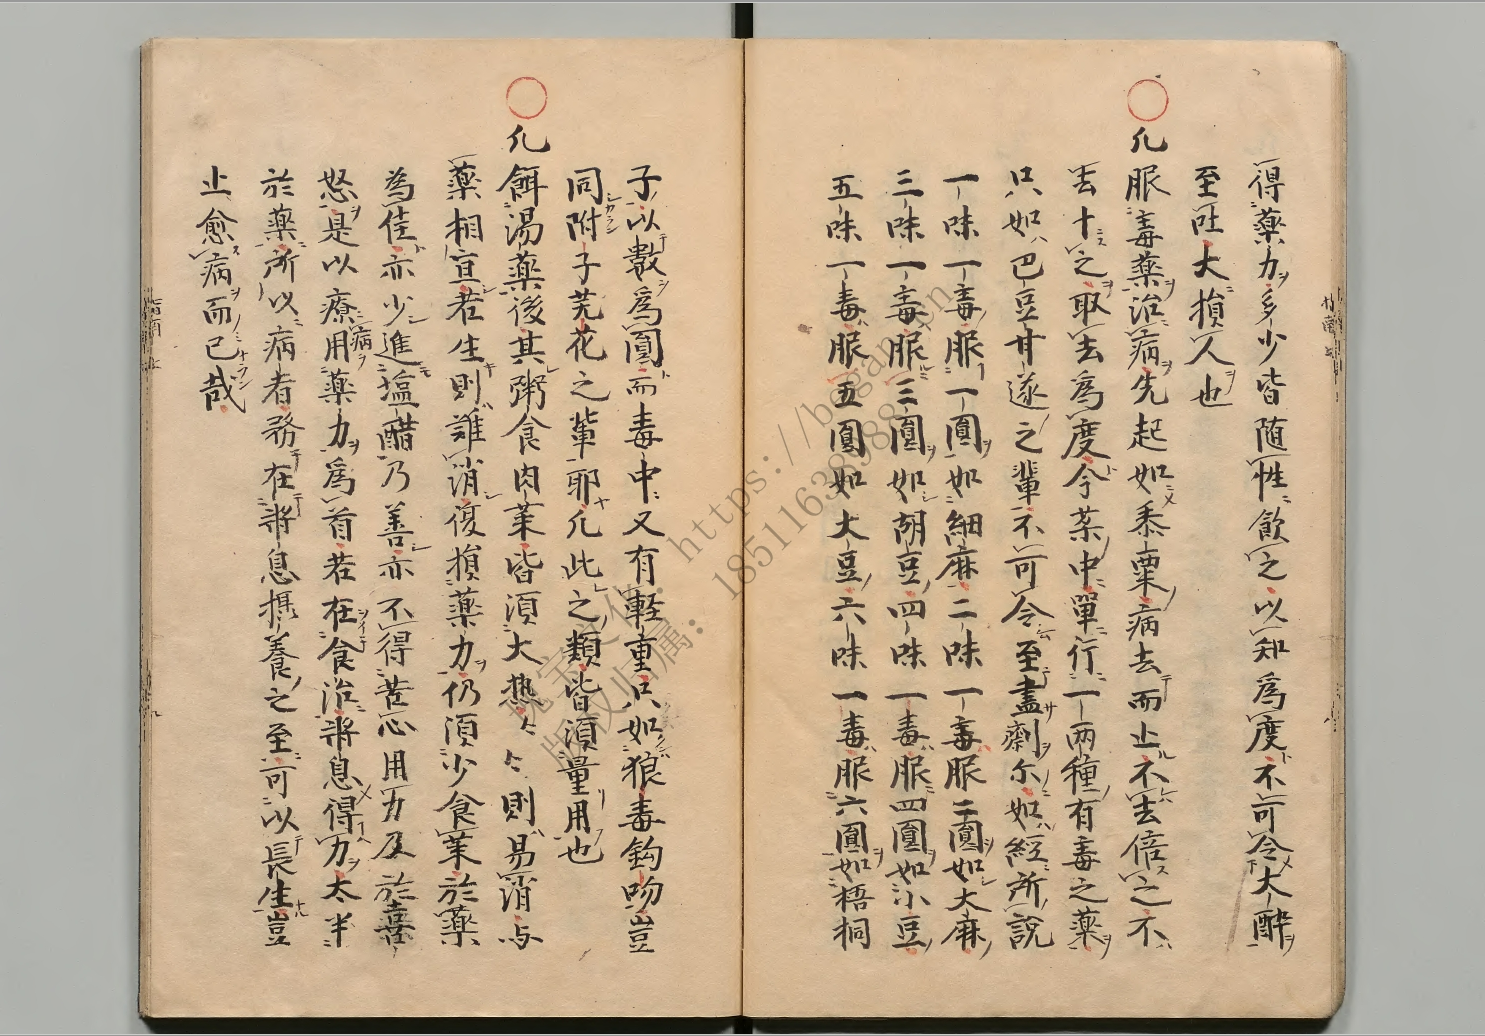 得藥力多少皆随性飲之以知為度不可令大醉
至吐大損人也
凡服毒藥治病先起如黍粟病去而止不去倍之不
去十之取去為度今藥中單行一兩種有毒之藥
只如巴豆甘遂之輩不可令至盡劑尓如經所說
一味一毒服一圓如細麻二味一毒服二圓如大麻
三味一毒服三圓如胡豆四味一毒服四圓如小豆
五味一毒服五圓如大豆六味一毒服六圓如梧桐
子以數為圓而毒中又有輕重只如狼毒鈎吻豈
同附子芫花之輩耶凡此之類皆須量用也
凡餌湯藥後其粥食肉菜皆須大熱々々則易消与
藥相宜若生則難消復損藥力仍須少食菜於藥
為佳亦少進塩醋乃善亦不得苦心用力及於喜
怒是以療病用藥力為首若在食治將息得力太半
於藥所以病者務在將息攝養之至可以長生豈
止愈病而已哉
https://bogan.cn
版权归属：18511638988